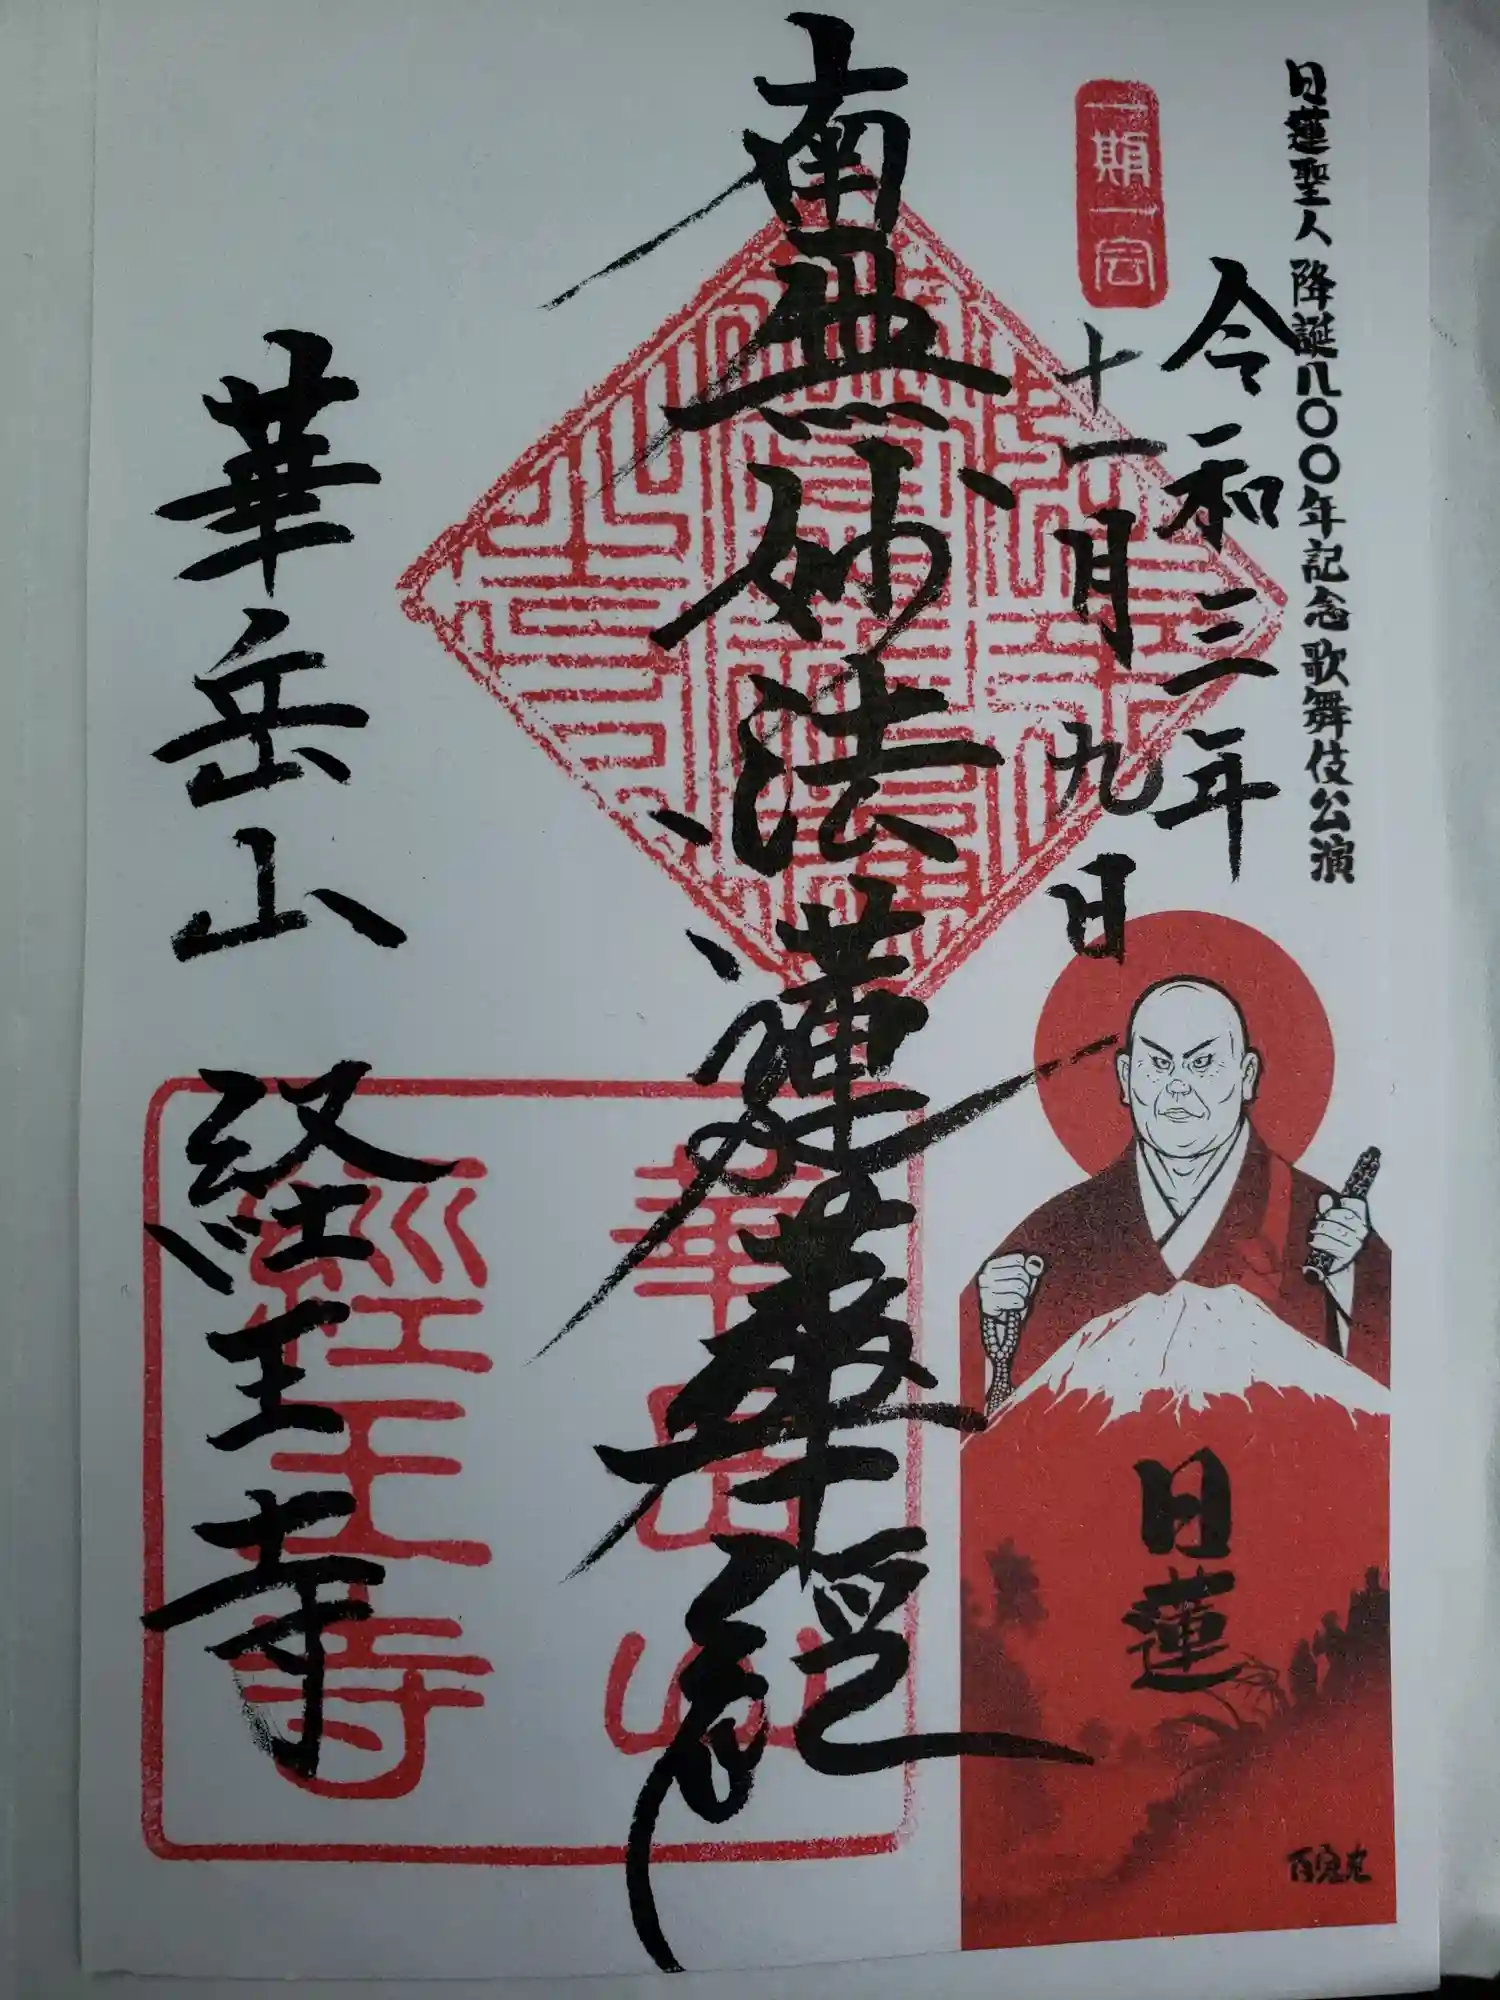 日蓮聖人降誕八〇〇年記念歌舞伎公演
一期一会
令和三年
十一月九日
南無妙法蓮華経
華岳山 経王寺
華岳山
經王寺
日蓮